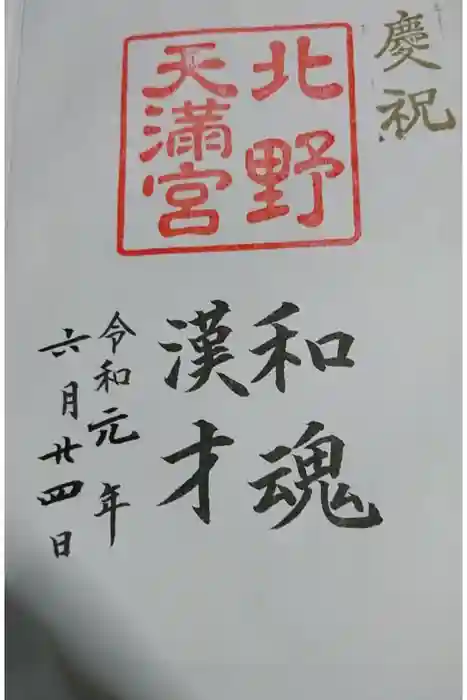 慶祝
北野
天満宮
和魂
漢才
令和元年
六月廿四日